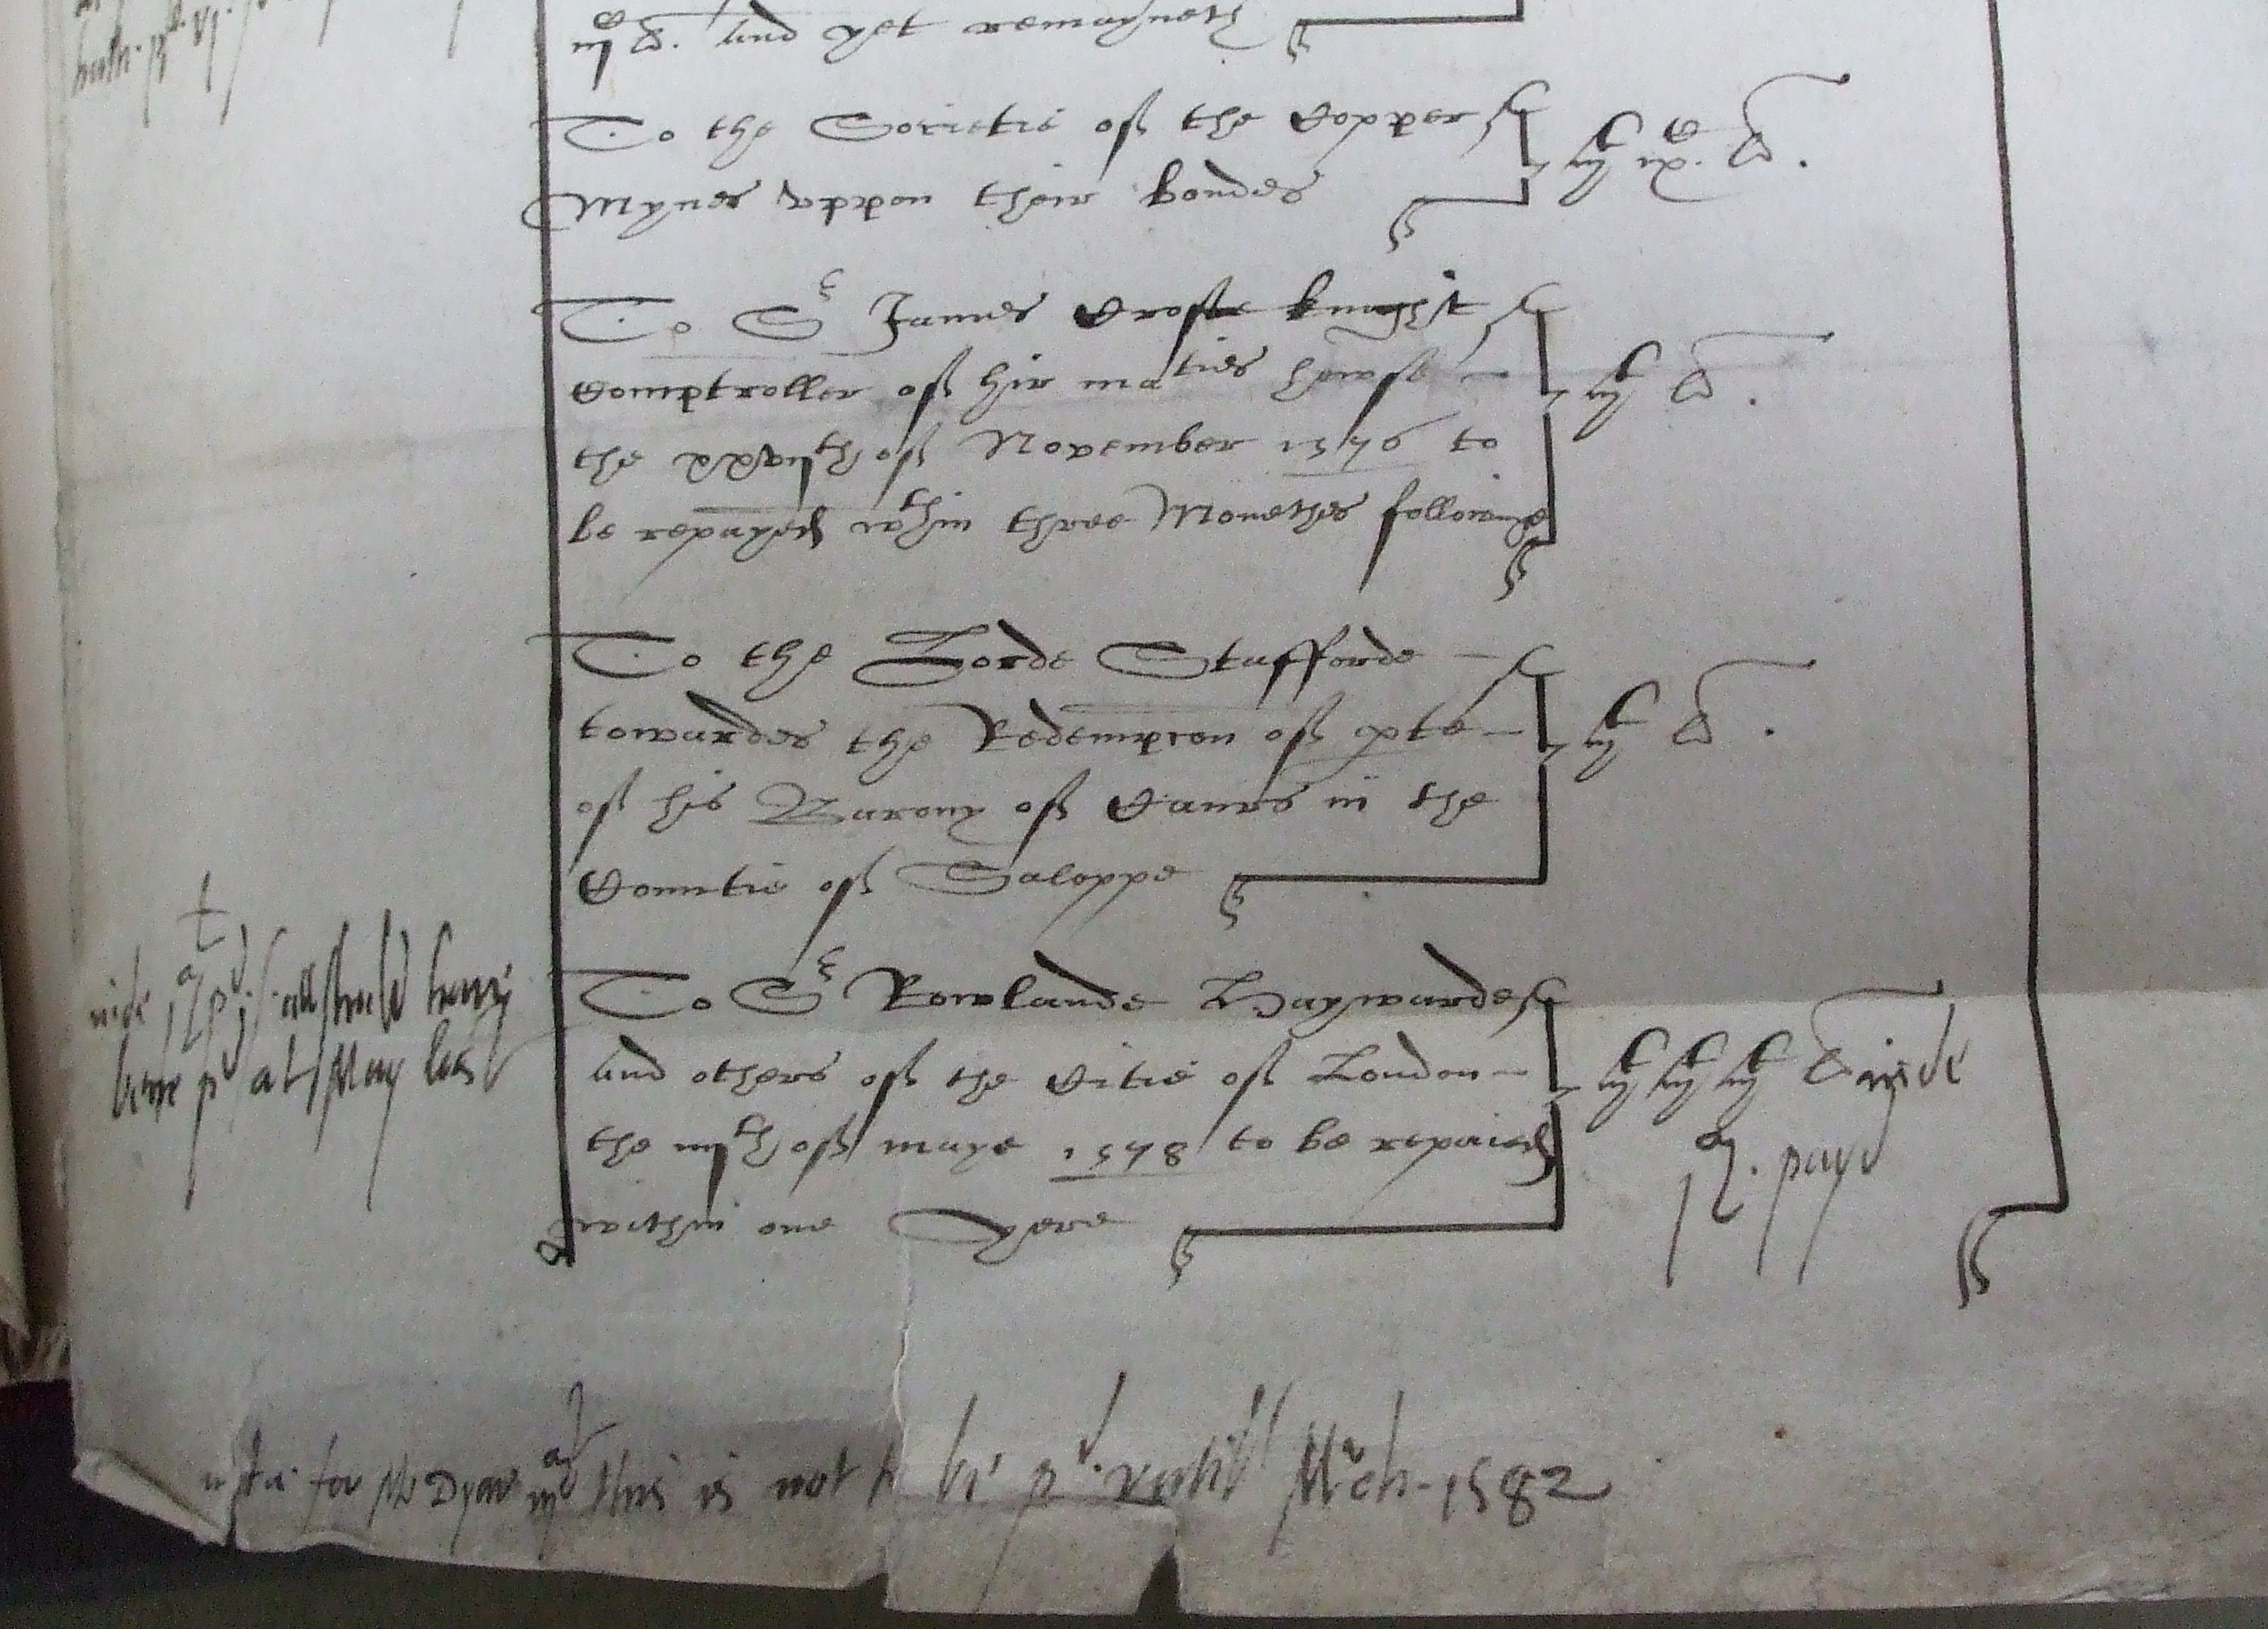 iiij c li. And yet remayneth
To the Societie of the Copper
Mynes vppon their bondes
m ix c li.
To Sr James Crofte knight
Comptroller of hir maties howse
the xxviijth of November 1576 to
be repayed wthin three Monethes followinge
m li.
To the Lorde Stafforde
towardes the Redempcon of pte
of his Barony of Caurs in the
Countie of Saloppe
m li.
To Sr Rowlande Haywarde
and others of the Citie of London
the iiijth of maye 1578 to be repaied
within one yere
m m m li. inde
payd
inde all shuld have
bene pd at May last
for Mr Dyar this is not to be pd vntill Mch - 1582